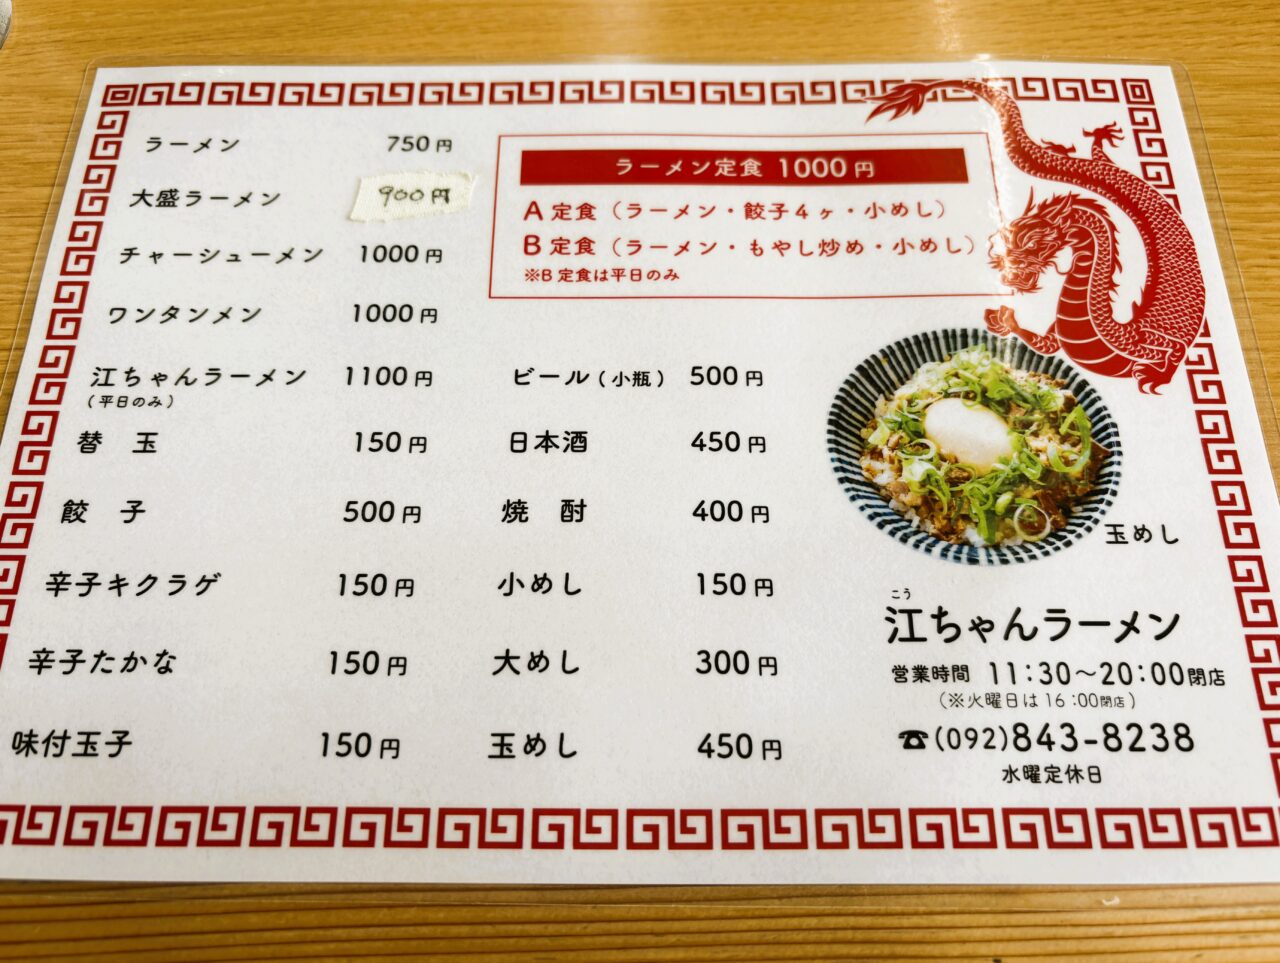 ラーメン 750円
大盛ラーメン 900円
チャーシューメン 1000円
ワンタンメン 1000円
江ちゃんラーメン 1100円
(平日のみ)
替 玉 150円
餃 子 500円
辛子キクラゲ 150円
辛子たかな 150円
味付玉子 150円
ラーメン定食 1000円
A定食(ラーメン・餃子4ヶ・小めし)
B定食(ラーメン・もやし炒め・小めし)
※B定食は平日のみ
ビール(小瓶) 500円
日本酒 450円
焼 酎 400円
小めし 150円
大めし 300円
玉めし 450円
玉めし
こう
江ちゃんラーメン
営業時間 11:30〜20:00閉店
(※火曜日は16:00閉店)
☎(092)843-8238
水曜定休日